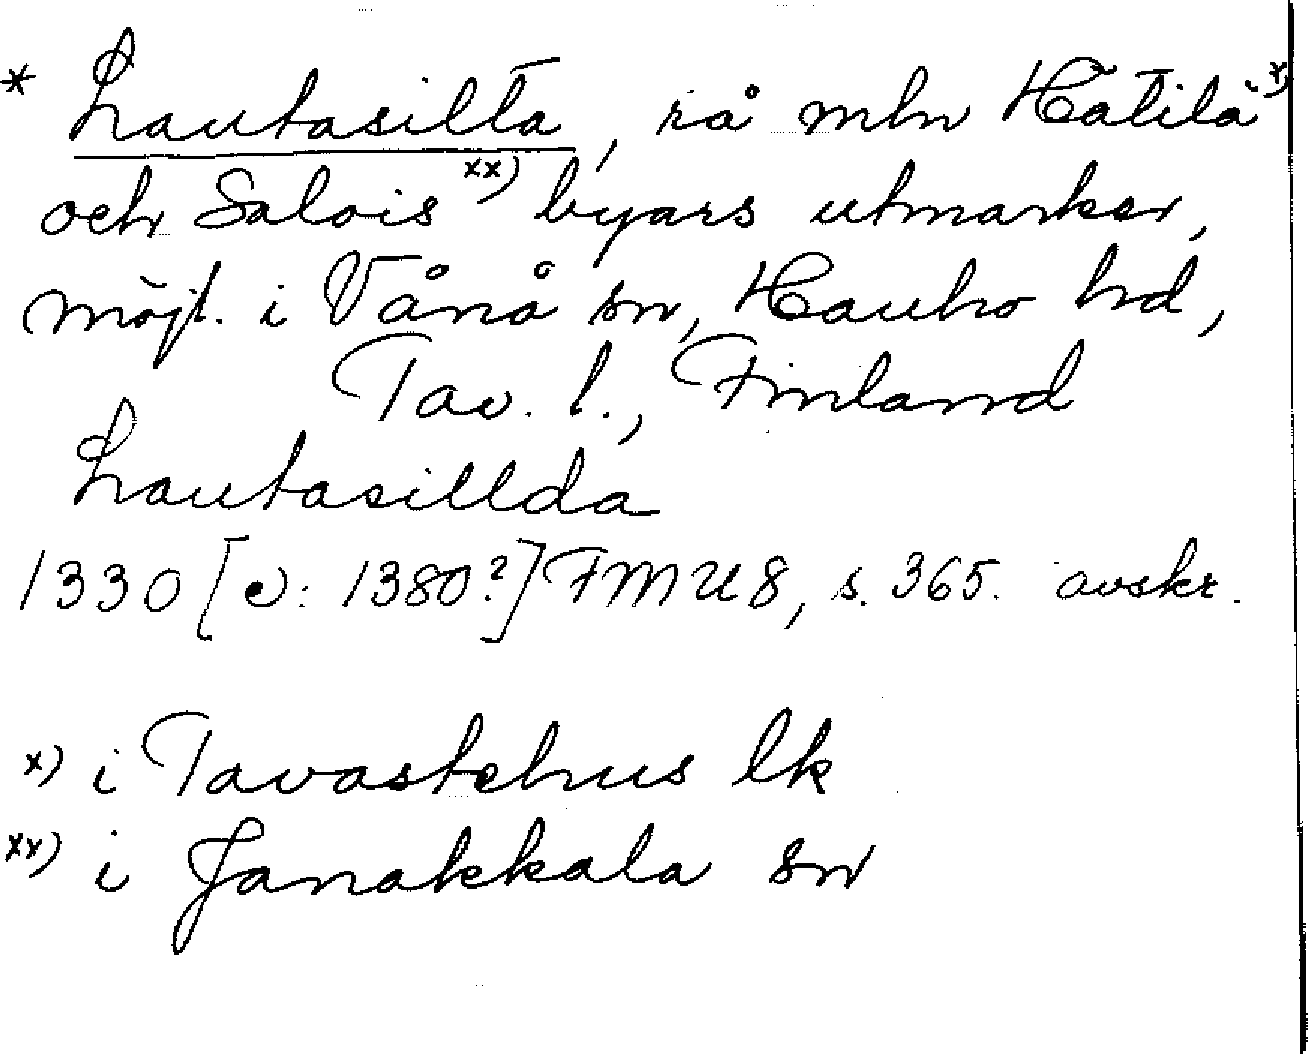 * Lautasilta, rå mln Hätilä x)
och Salois xx) byars utmarker,
möjl. i Vånå sn, Hauho hd,
Tav. l., Finland
Lautasillda
1330 [ɔ: 1380?] FMU 8, s. 365. avskr.
x) i Tavastehus lk
xx) i Janakkala sn